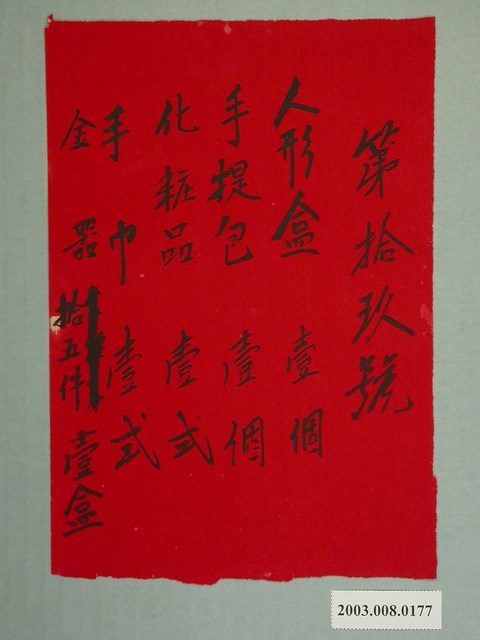 第拾玖號
人形盒 壹個
手提包 壹個
化粧品 壹式
手巾 壹式
金器 拾五件 壹盒
2003.008.0177